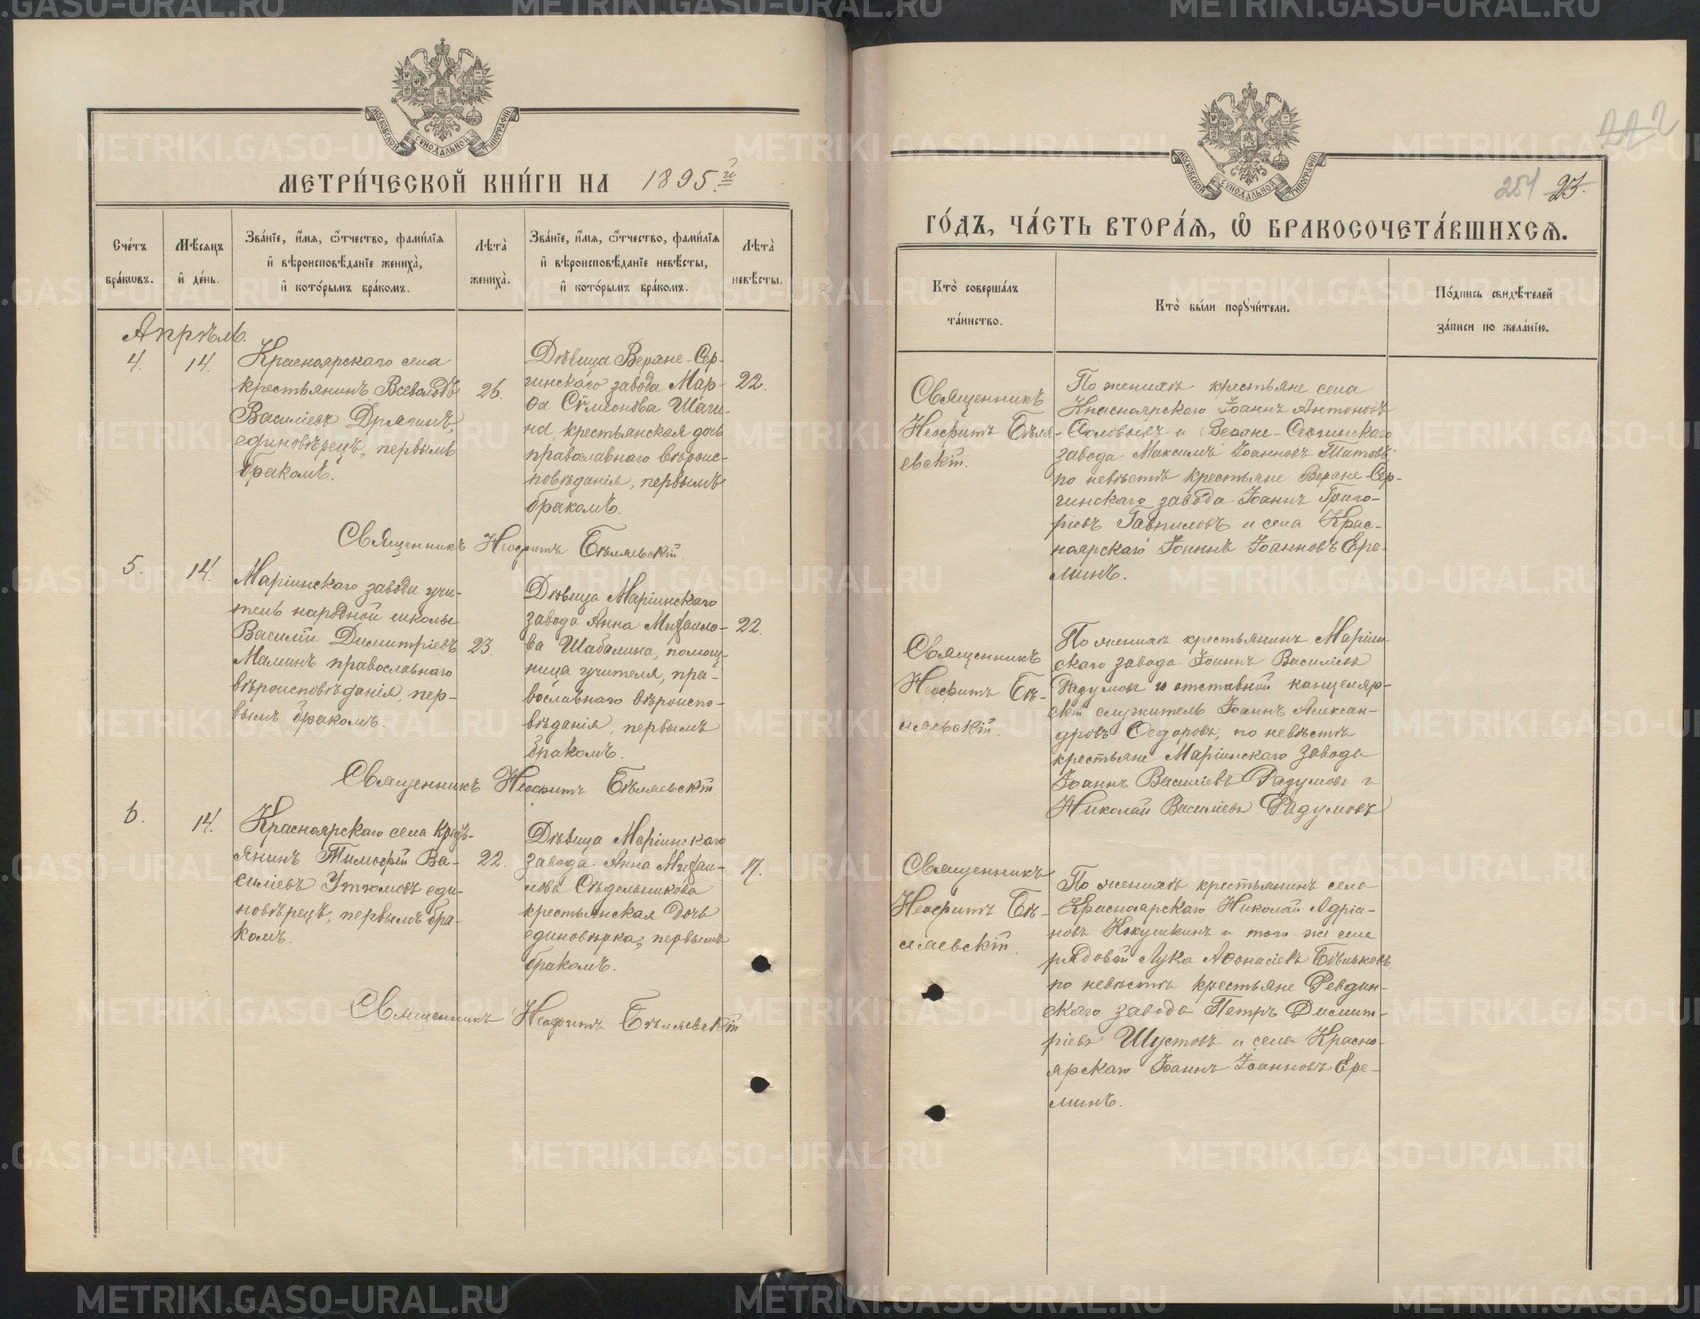 МЕТРИ́ЧЕСКОЙ КНИ́ГИ НА 1895й
Сче́тъ бра́кѡвъ.
Мѣсяцъ и҆ де́нь.
Зва́нїе, и҆́мя, ѻ҆́тчество, фами́лїя и҆ вѣроисповѣ́данїе жениха̀, и҆ кото́рымъ бра́комъ.
Лѣта̀ жениха̀.
Зва́нїе, и҆́мя, ѻ҆́тчество, фами́лїя и҆ вѣроисповѣ́данїе невѣ́сты, и҆ кото́рымъ бра́комъ.
Лѣта̀ невѣ́сты.
Апрѣль.
4.
14.
Красноярскаго села
крестьянинъ Всеволодъ
Василіевъ Дрягинъ,
единовѣрецъ, первымъ
бракомъ.
26.
Дѣвица Верхне-Сер-
гинскаго завода Мар-
ѳа Сѵмеонова Шаги-
на, крестьянская дочь
православнаго вѣроис-
повѣданія, первымъ
бракомъ.
22.
Священникъ Неофитъ Бѣляевскій
5.
14.
Маріинскаго завода учи-
тель народной школы
Василій Димитріевъ
Маминъ православнаго
вѣроисповѣданія, пер-
вымъ бракомъ.
23.
Дѣвица Маріинскаго
завода Анна Михаило-
ва Шабалина, помощ-
ница учителя, пра-
вославнаго вѣроиспо-
вѣданія, первымъ
бракомъ.
22.
Священникъ Неофитъ Бѣляевскій
6.
14.
Красноярскаго села крест-
янинъ Тимофей Ва-
силіевъ Утюмовъ еди-
новѣрецъ, первымъ бра-
комъ.
22.
Дѣвица Маріинскаго
завода Анна Михаи-
лова Сѣдельникова
крестьянская дочь
единовѣрка, первымъ
бракомъ.
17.
Священникъ Неофитъ Бѣляевскій
251 23.
ГО́ДЪ, ЧА́СТЬ ВТОРА́Я, Ѡ҆ БРАКОСОЧЕТА́ВШИХСЯ.
Кто̀ соверша́лъ та́инство.
Кто̀ бы́ли порꙋчи́тели.
По́дпись свидѣ́телей за́писи по жела́нїю.
Священникъ
Неофитъ Бѣля-
евскій.
По женихѣ крестьяне села
Красноярскаго Іоаннъ Антоновъ
Соловьевъ и Верхне-Сергинскаго
завода Максимъ Іоанновъ Титовъ
по невѣстѣ крестьяне Верхне-Сер-
гинскаго завода Іоаннъ Григо-
ріевъ Гавриловъ и села Крас-
ноярскаго Іоаннъ Іоанновъ Ере-
минъ.
Священникъ
Неофитъ Бѣ-
ляевскій.
По женихѣ крестьянинъ Маріин
скаго завода Іоаннъ Василіевъ
Разумовъ и отставной канцеляр-
скій служитель Іоаннъ Алексан-
дровъ Ѳедоровъ, по невѣстѣ
крестьяне Маріинскаго завода
Іоаннъ Василіевъ Разумовъ и
Николай Василіевъ Разумовъ
Священникъ
Неофитъ Бѣ-
ляевскій.
По женихѣ крестьянинъ села
Красноярскаго Николай Адріа-
новъ Кокушкинъ и того-же села
рядовой Лука Аѳонасіевъ Бѣльковъ
по невѣстѣ крестьяне Ревдин-
скаго завода Петръ Димит-
ріевъ Шустовъ и села Красно-
ярскаго Іоаннъ Іоанновъ Ере-
минъ.